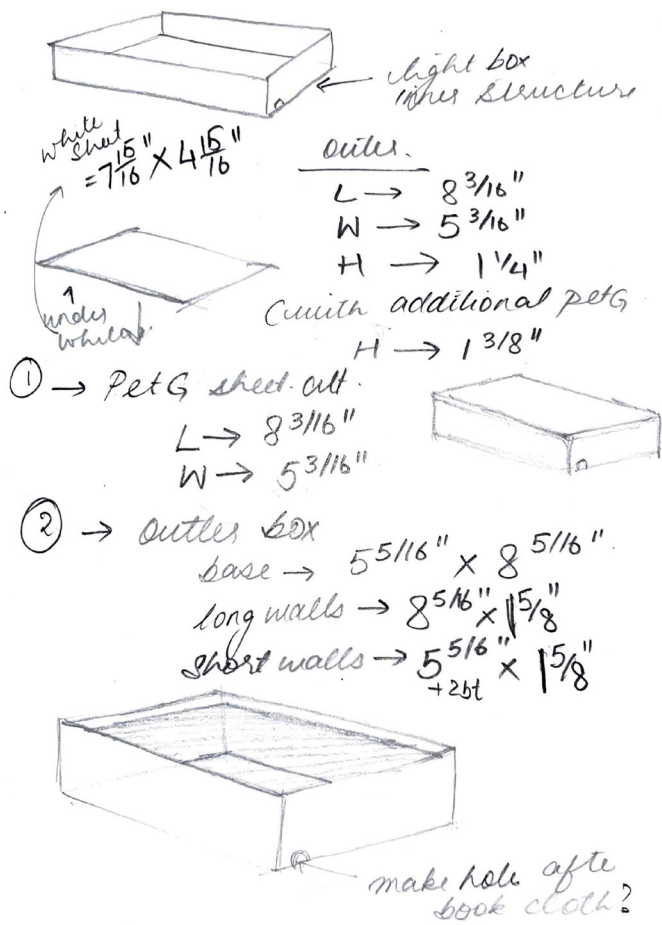 light box
inner structure
white
sheet
= 7 15/16" × 4 15/16"
outer.
L → 8 3/16"
W → 5 3/16"
H → 1 1/4"
with additional petG
H → 1 3/8"
↑
under
① → PetG sheet cut.
L → 8 3/16"
W → 5 3/16"
② → outer box
base → 5 5/16" × 8 5/16"
long walls → 8 5/16" × 1 5/8"
short walls → 5 5/16" × 1 5/8"
+2bt
make hole afte
book cloth?